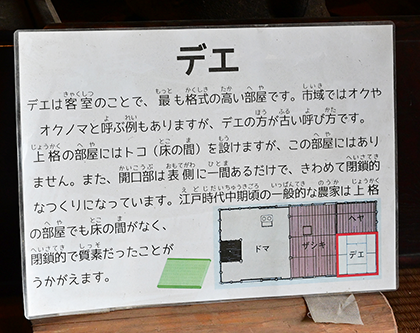 デエ
デエは客室のことで、最も格式の高い部屋です。市域ではオクや
オクノマと呼ぶ例もありますが、デエの方が古い呼び方です。
上格の部屋にはトコ(床の間)を設けますが、この部屋にはあり
ません。また、開口部は表側に一間あるだけで、きわめて閉鎖的
なつくりになっています。江戸時代中期頃の一般的な農家は上格
の部屋でも床の間がなく、
閉鎖的で質素だったことが
うかがえます。
ドマ
ザシキ
ヘヤ
デエ